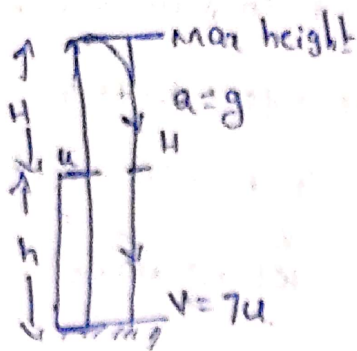 Max height
a=g
H
H
u
h
V=7u